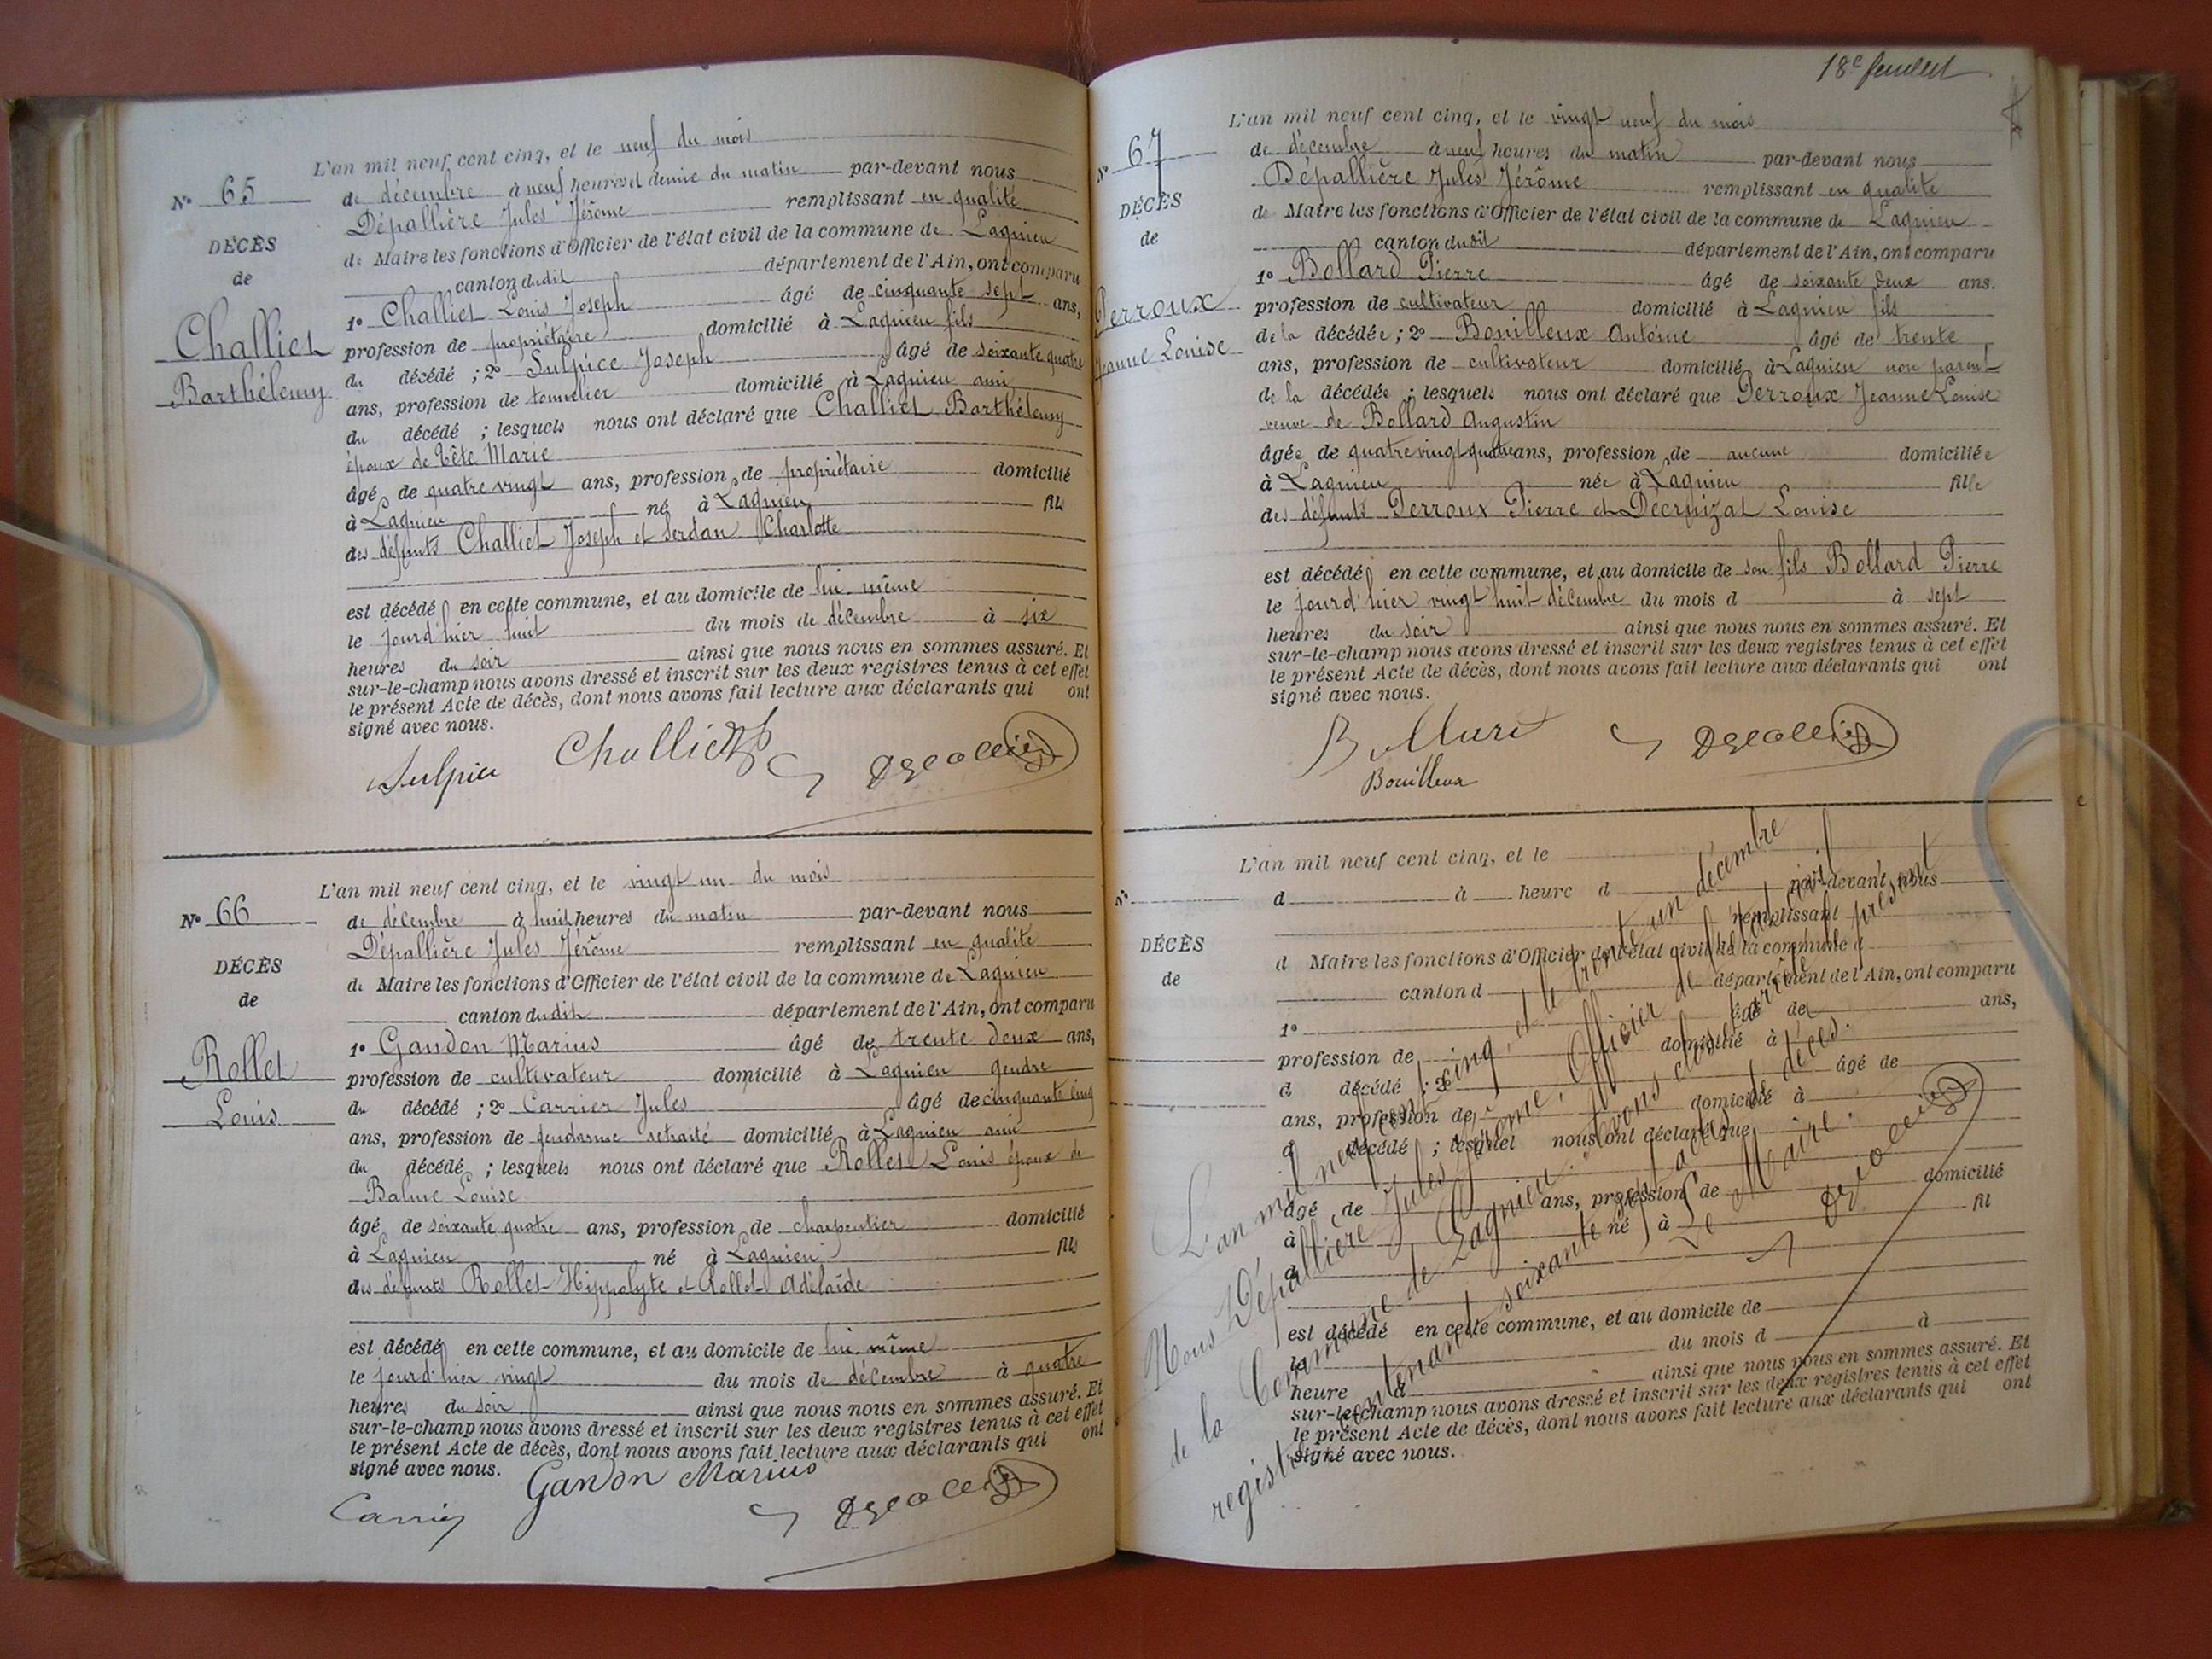 N° 65
DÉCÈS
de
Challiet
Barthélemy
L'an mil neuf cent cinq, et le neuf du mois
de décembre à neuf heures et demie du matin par-devant nous
Dépallière Jules Jérôme remplissant en qualité
de Maire les fonctions d'Officier de l'état civil de la commune de Lagnieu
canton dudit département de l'Ain, ont comparu
1° Challiet Louis Joseph âgé de cinquante sept ans,
profession de propriétaire domicilié à Lagnieu fils
du décédé ; 2° Sulpice Joseph âgé de soixante quatre
ans, profession de tonnelier domicilié à Lagnieu ami
du décédé ; lesquels nous ont déclaré que Challiet Barthélemy
époux de Tête Marie
âgé de quatre vingt ans, profession de propriétaire domicilié
à Lagnieu né à Lagnieu fils
des défunts Challiet Joseph et Serdan Charlotte
est décédé en cette commune, et au domicile de lui même
le jourd'hier huit du mois de décembre à six
heures du soir ainsi que nous nous en sommes assuré. Et
sur-le-champ nous avons dressé et inscrit sur les deux registres tenus à cet effet
le présent Acte de décès, dont nous avons fait lecture aux déclarants qui ont
signé avec nous.
Sulpice Challiet
N° 66
DÉCÈS
de
Rollet
Louis
L'an mil neuf cent cinq, et le vingt un du mois
de décembre à huit heures du matin par-devant nous
Dépallière Jules Jérôme remplissant en qualité
de Maire les fonctions d'Officier de l'état civil de la commune de Lagnieu
canton dudit département de l'Ain, ont comparu
1° Gandon Marius âgé de trente deux ans,
profession de cultivateur domicilié à Lagnieu gendre
du décédé ; 2° Carrier Jules âgé de cinquante cinq
ans, profession de gendarme retraité domicilié à Lagnieu ami
du décédé ; lesquels nous ont déclaré que Rollet Louis époux de
Balme Louise
âgé de soixante quatre ans, profession de charpentier domicilié
à Lagnieu né à Lagnieu fils
des défunts Rollet Hippolyte et Rollet Adélaïde
est décédé en cette commune, et au domicile de lui même
le jourd'hier vingt du mois de décembre à quatre
heures du soir ainsi que nous nous en sommes assuré. Et
sur-le-champ nous avons dressé et inscrit sur les deux registres tenus à cet effet
le présent Acte de décès, dont nous avons fait lecture aux déclarants qui ont
signé avec nous.
Gandon Marius
Carrier
18e feuillet
N° 67
DÉCÈS
de
Perroux
Jeanne Louise
L'an mil neuf cent cinq, et le vingt neuf du mois
de décembre à neuf heures du matin par-devant nous
Dépallière Jules Jérôme remplissant en qualité
de Maire les fonctions d'Officier de l'état civil de la commune de Lagnieu
canton dudit département de l'Ain, ont comparu
1° Bollard Pierre âgé de soixante deux ans.
profession de cultivateur domicilié à Lagnieu fils
de la décédée ; 2° Bouilleux Antoine âgé de trente
ans, profession de cultivateur domicilié à Lagnieu non parent
de la décédée ; lesquels nous ont déclaré que Perroux Jeanne Louise
veuve de Bollard Augustin
âgée de quatre vingt quatre ans, profession de aucune domiciliée
à Lagnieu née à Lagnieu fille
des défunts Perroux Pierre et Décruizat Louise
est décédé en cette commune, et au domicile de son fils Bollard Pierre
le jourd'hier vingt huit décembre du mois d à sept
heures du soir ainsi que nous nous en sommes assuré. Et
sur-le-champ nous avons dressé et inscrit sur les deux registres tenus à cet effet
le présent Acte de décès, dont nous avons fait lecture aux déclarants qui ont
signé avec nous.
Bouilleux
N°
DÉCÈS
de
L'an mil neuf cent cinq, et le
d à heure d par-devant nous
remplissant
d Maire les fonctions d'Officier de l'état civil de la commune d
canton d département de l'Ain, ont comparu
1° âgé de ans,
profession de domicilié à
d décédé ; 2° âgé de
ans, profession de domicilié à
d décédé ; lesquel nous ont déclaré que
âgé de ans, profession de domicilié
à né à fil
d
est décédé en cette commune, et au domicile de
le du mois d à
heure d ainsi que nous nous en sommes assuré. Et
sur-le-champ nous avons dressé et inscrit sur les deux registres tenus à cet effet
le présent Acte de décès, dont nous avons fait lecture aux déclarants qui ont
signé avec nous.
L'an mil neuf cent cinq, et le trente un décembre
Nous Dépallière Jules Jérôme, Officier de l'état civil
de la Commune de Lagnieu, avons clos et arrêté le présent
registre contenant soixante sept actes de décès.
Le Maire.